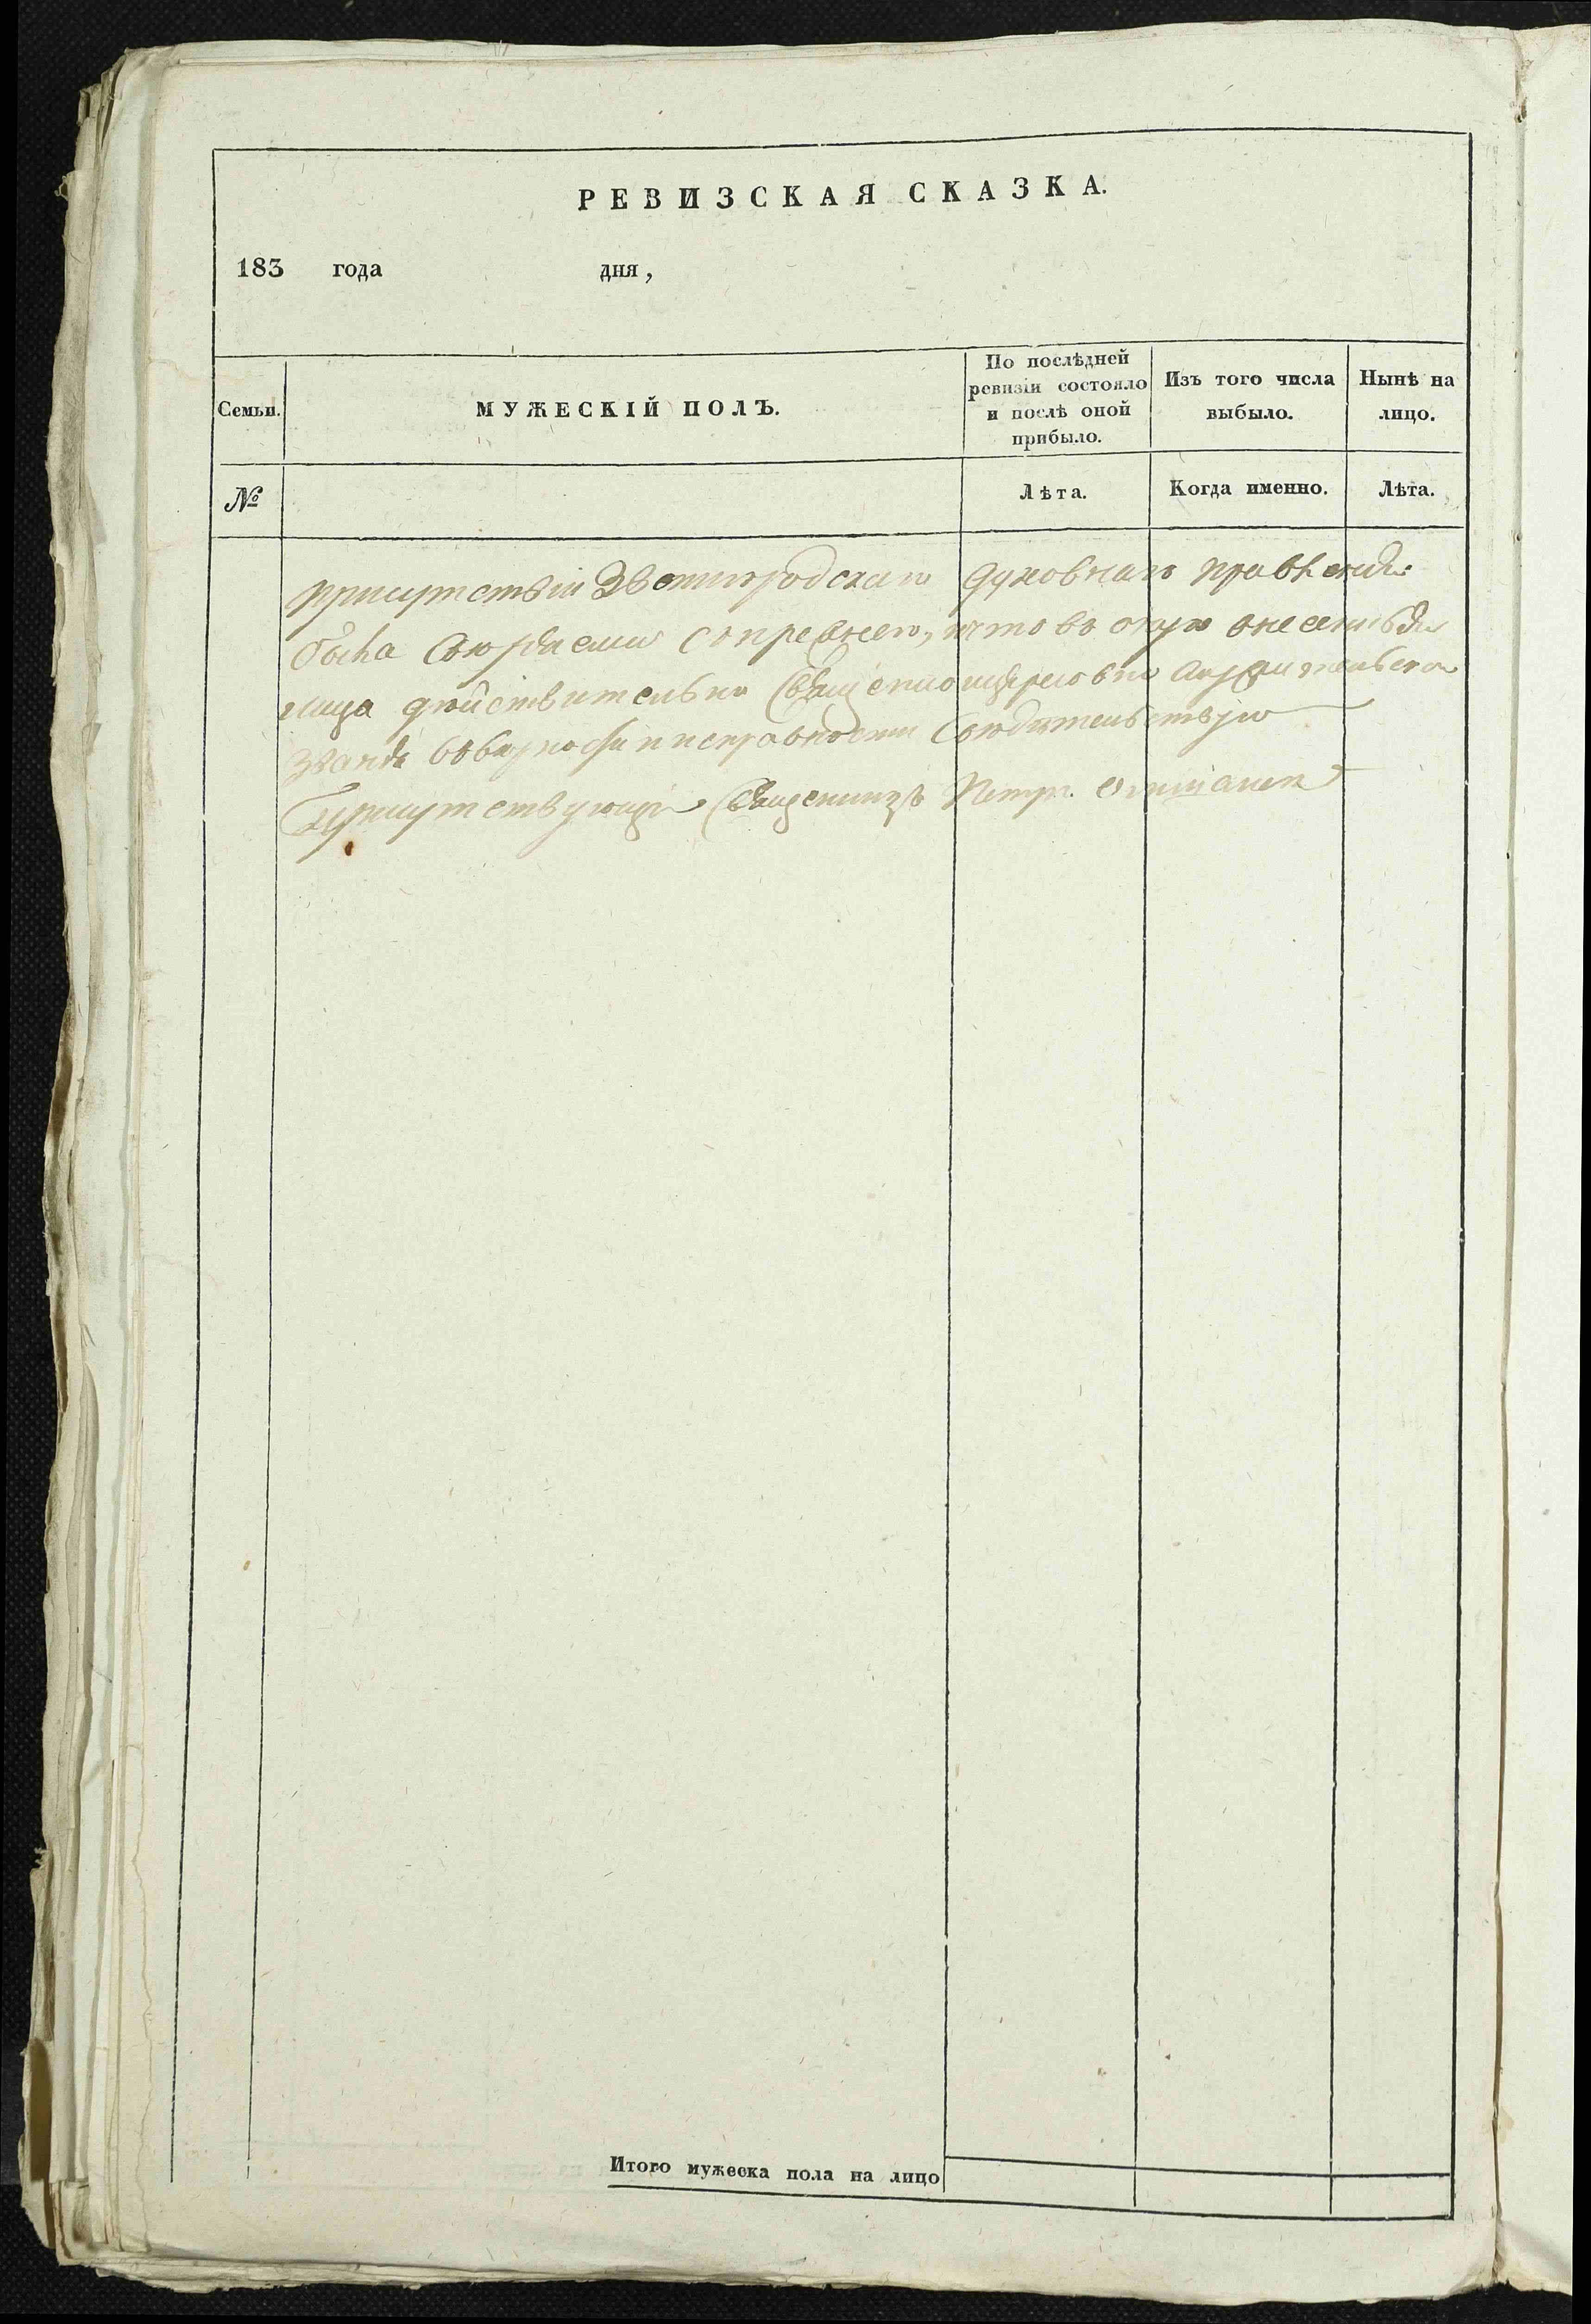 РЕВИЗСКАЯ СКАЗКА.
183 года дня,
Семьи.
МУЖЕСКІЙ ПОЛЪ.
По послѣдней
ревизіи состояло
и послѣ оной
прибыло.
Изъ того числа
выбыло.
Нынѣ на
лицо.
№
Лѣта.
Когда именно.
Лѣта.
присутствіи Звенигородскаго духовнаго правленія
была что во оную внесенныя
лица дѣйствительно священноцерковно
званія и исправности
Присутствующій Священникъ Петръ
Итого мужеска пола на лицо